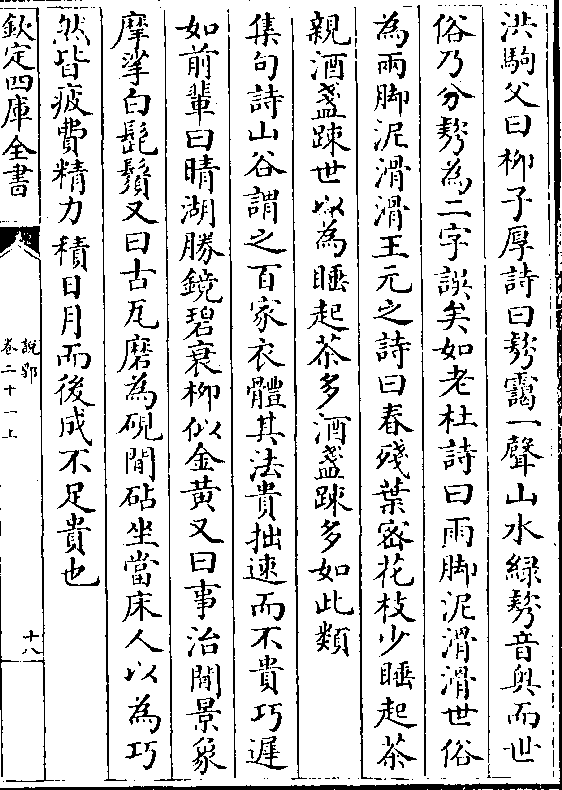 洪駒父曰柳子厚詩曰㰟靄一聲山水綠㰟音奥而世
俗乃分㰟為二字誤矣如老杜詩曰雨脚泥滑滑世俗
為兩脚泥滑滑王元之詩曰春殘葉宻花枝少睡起茶
親酒盞踈世以為睡起茶多酒盞踈多如此類
集句詩山谷謂之百家衣體其法貴拙速而不貴巧遲
如前輩曰晴湖勝鏡碧衰柳似金黃又曰事治閒景象
摩挲白髭鬚又曰古瓦磨為硯閒砧坐當床人以為巧
然皆疲費精力積日月而後成不足貴也
欽定四庫全書
說郛
卷二十一上
十八